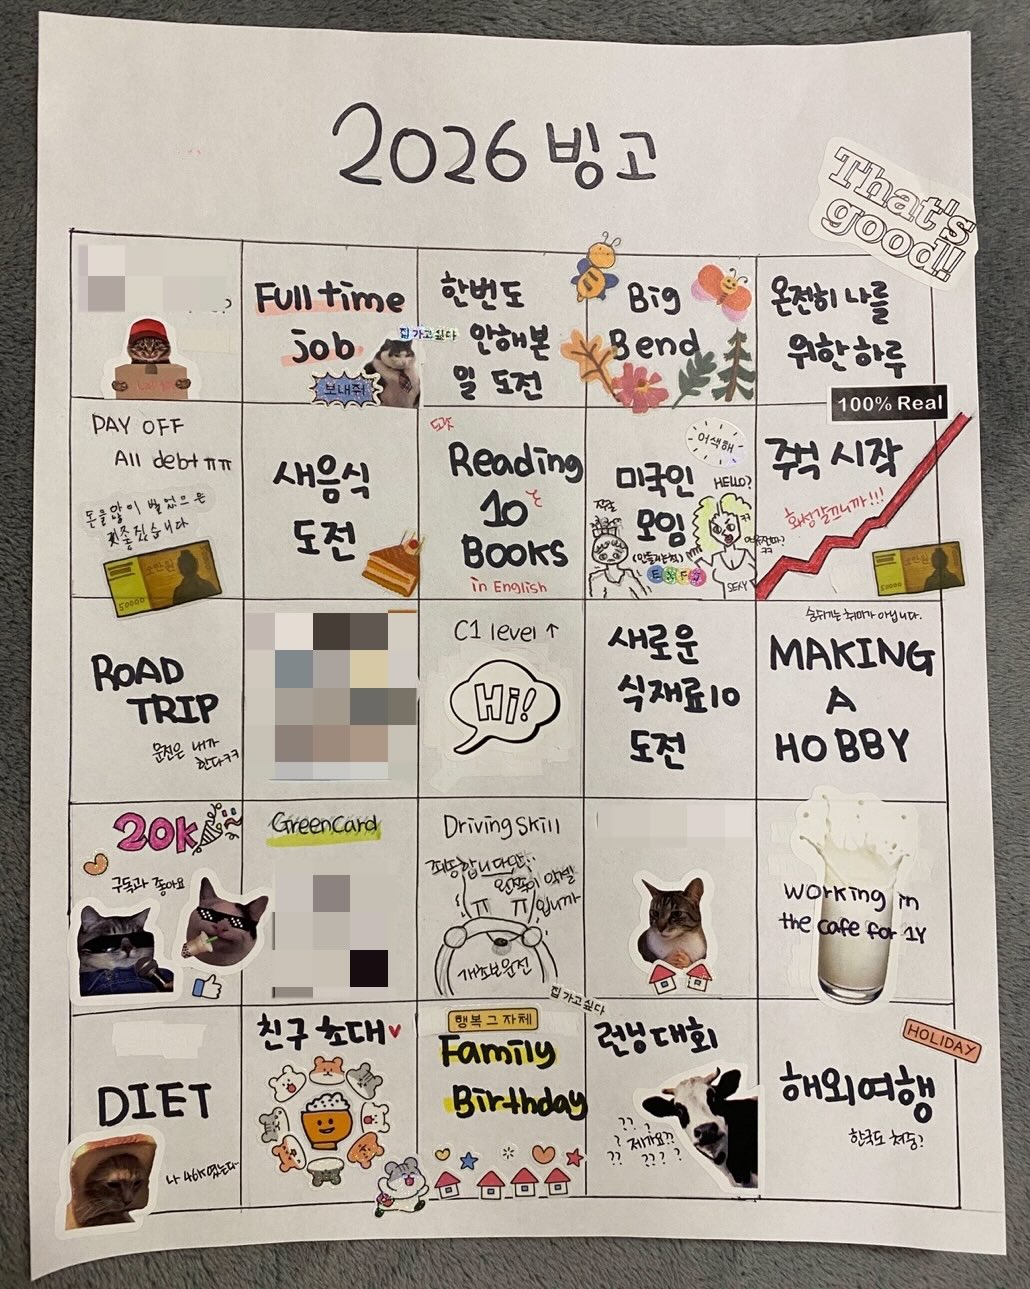 2026 빙고
That's
good!!
Full time
job
집 가고싶다
보내줘
한번도
안해본
일 도전
Big
Bend
온전히 나를
위한 하루
100% Real
PAY OFF
All debt ㅠㅠ
돈을 많이 벌었으면
좋겠습니다
50000
새음식
도전
도전
Reading
10
BOOKS
in English
어색해
미국인
모임
HELLO?
(만들거나)
SEXY
주식 시작
화성갈끄니까!!!
50000
ROAD
TRIP
운전은 내가
한다ㅋㅋ
C1 level ↑
Hi!
새로운
식재료10
도전
숨쉬기는 취미가 아닙니다.
MAKING
A
HOBBY
20k
구독과 좋아요
GreenCard
Driving skill
죄송합니다만..
왼쪽이 악셀
입니까
ㅠ ㅠ
개초보운전
working in
the cafe for 1Y
집 가고싶다
DIET
나 46k였는데
친구 초대
행복 그 자체
Family
Birthday
런닝대회
??
?? 제가요??
?? ????
HOLIDAY
해외여행
한국도 쳐줌?